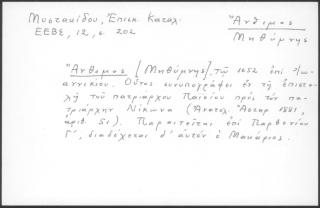 Μυστακίδου, Ἐπισκ. Καταλ.
ΕΕΒΣ, 12, σ. 202
Ἄνθιμος
Μηθύμνης
Ἄνθιμος [Μηθύμνης] τῷ 1652 ἐπὶ Ἰω-
αννικίου. Οὗτος συνυπογράφει ἐν τῇ ἐπιστο-
λῇ τοῦ πατριάρχου Παϊσίου πρὸς τὸν πα-
τριάρχην Νίκωνα (Ἀνατολ. Ἀστὴρ 1881,
ἀριθ. 51). Παραιτεῖται ἐπὶ Παρθενίου
Γ΄, διαδέχεται δ' αὐτὸν ὁ Μακάριος.